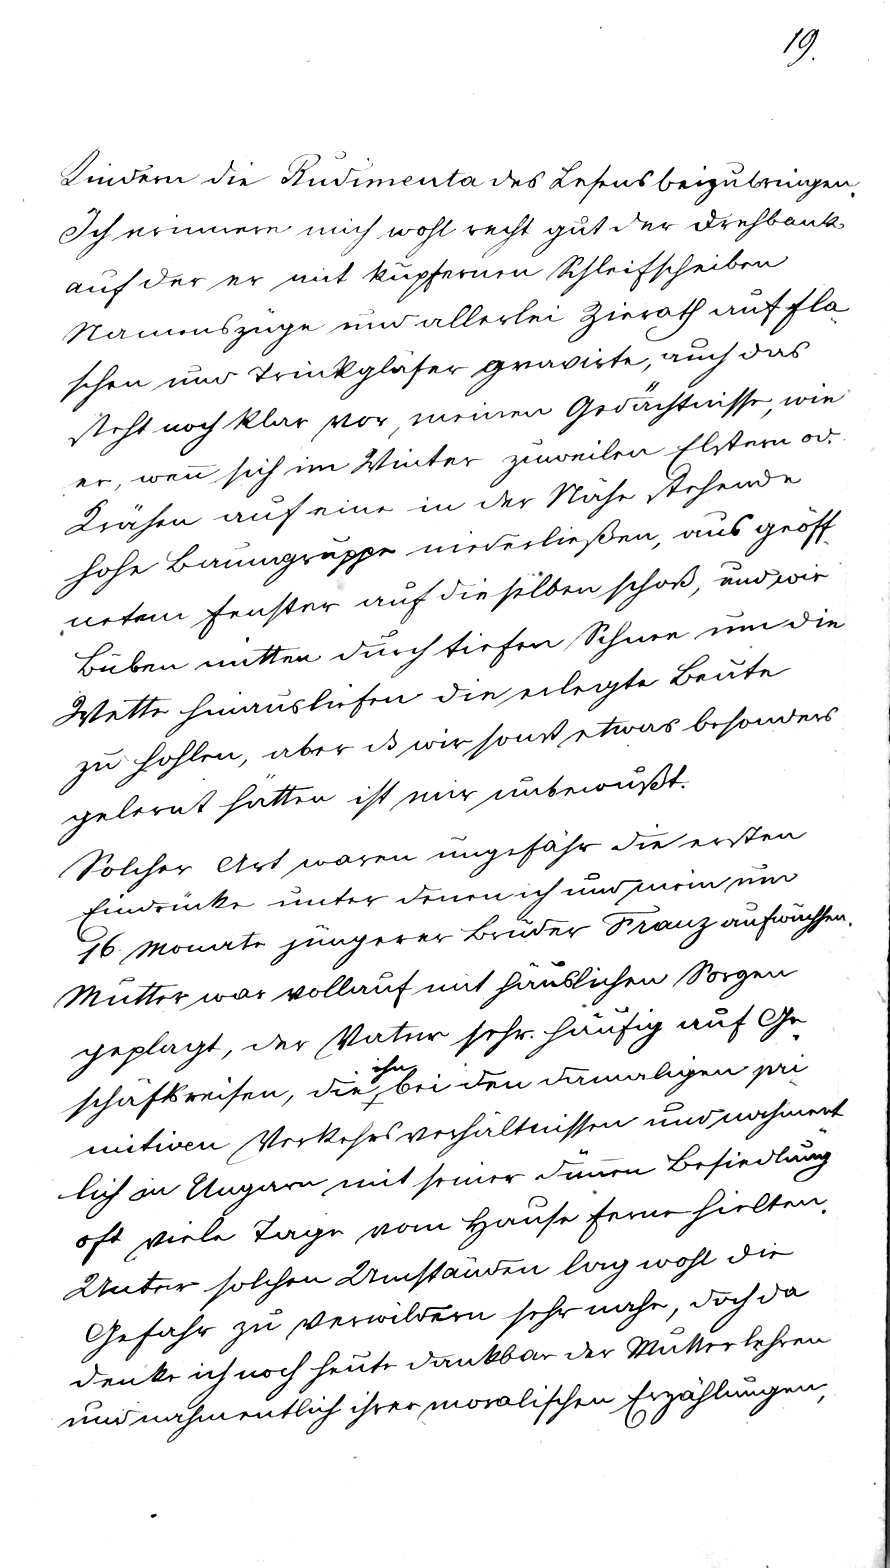 19.
Kindern die Rudimenta des Lesens beizubringen.
Ich erinnere mich wohl recht gut der Drehbank
auf der er mit kupfernen Schleifscheiben
Namenszüge und allerlei Zierath auf Fla-
schen und Trinkgläser gravirte, auch das
steht noch klar vor, meinen Gedächtnisse, wie
er, weñ sich im Winter zuweilen Elstern od.
Krähen auf eine in der Nähe stehende
hohe Baumgruppe niederließen, aus geöff-
netem Fenster auf dieselben schoß, und wir
Buben mitten durch tiefen Schnee um die
Wette hinausliefen die erlegte Beute
zu hohlen, aber ds wir sonst etwas besonders
gelernt hätten ist mir unbewußt.
Solcher Art waren ungefähr die ersten
Eindrücke unter denen ich und mein um
16 Monate jüngerer Bruder Franz aufwuchsen.
Mutter war vollauf mit häuslichen Sorgen
geplagt, der Vater sehr häufig auf Ge-
schäftsreisen, die ihn bei den damaligen pri-
mitiven Verkehrsverhältnissen und nahment-
lich in Ungarn mit seiner düñen Besiedlung
oft viele Tage vom Hause ferne hielten.
Unter solchen Umständen lag wohl die
Gefahr zu verwildern sehr nahe, doch da
denke ich noch heute dankbar der Mutterlehren
und nahmentlich ihrer moralischen Erzählungen,